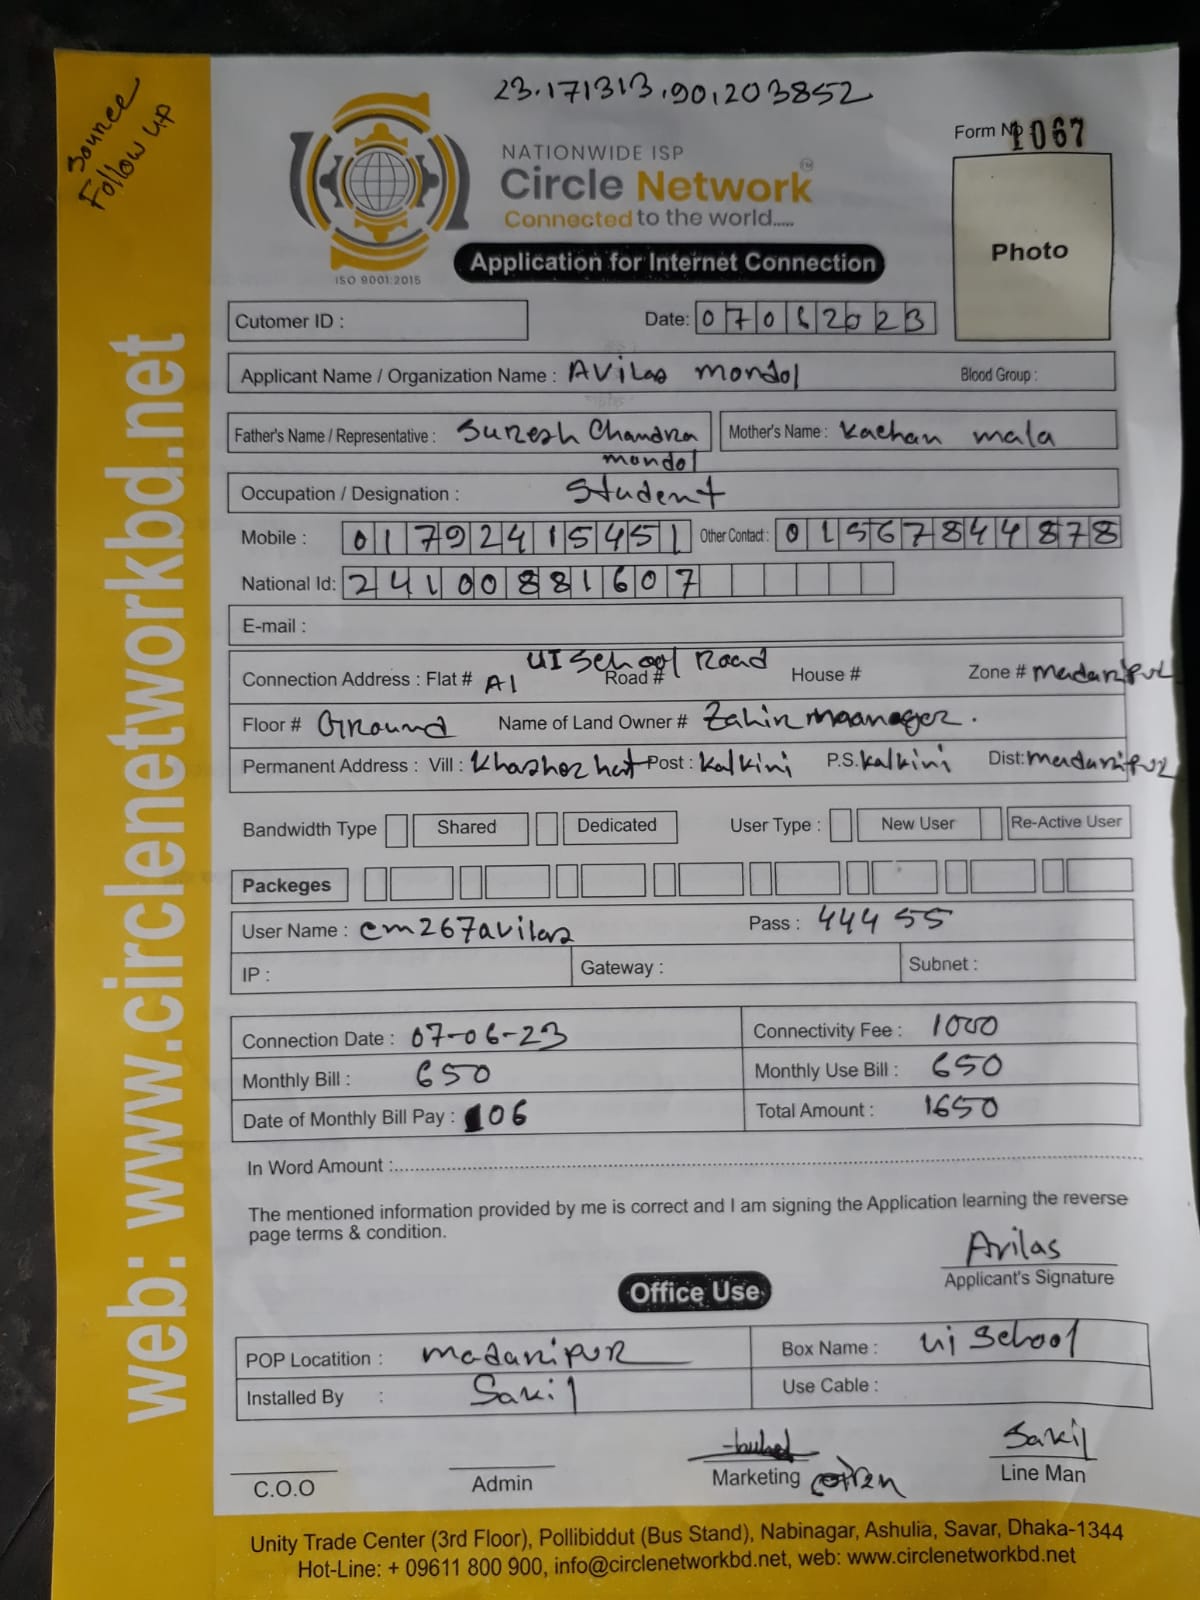 Sounce
Follow up
23.171313,90,203852
Form No 1067
NATIONWIDE ISP
Circle Network
Connected to the world.....
ISO 9001:2015
Application for Internet Connection
Photo
Cutomer ID :
Date: 07062023
Applicant Name / Organization Name : Avilas mondol Blood Group :
Father's Name / Representative : Suresh Chandra mondol Mother's Name : Kachan mala
Occupation / Designation : Student
Mobile : 01792415451 Other Contact : 01567844878
National Id: 24100881607
E-mail :
Connection Address : Flat # A1 UI School Road Road # House # Zone # madaripur
Floor # Ground Name of Land Owner # Zahir maanager.
Permanent Address : Vill : Khasher hat Post : Kalkini P.S. kalkini Dist: madaripur
Bandwidth Type Shared Dedicated User Type : New User Re-Active User
Packeges
User Name : cm267avilas Pass : 44455
IP : Gateway : Subnet :
Connection Date : 07-06-23 Connectivity Fee : 1000
Monthly Bill : 650 Monthly Use Bill : 650
Date of Monthly Bill Pay : 06 Total Amount : 1650
In Word Amount :
The mentioned information provided by me is correct and I am signing the Application learning the reverse
page terms & condition.
Avilas
Applicant's Signature
Office Use
POP Locatition : madaripur Box Name : ui School
Installed By : Sakil Use Cable :
Sakil
C.O.O Admin Marketing Line Man
Unity Trade Center (3rd Floor), Pollibiddut (Bus Stand), Nabinagar, Ashulia, Savar, Dhaka-1344
Hot-Line: + 09611 800 900, info@circlenetworkbd.net, web: www.circlenetworkbd.net
web: www.circlenetworkbd.net